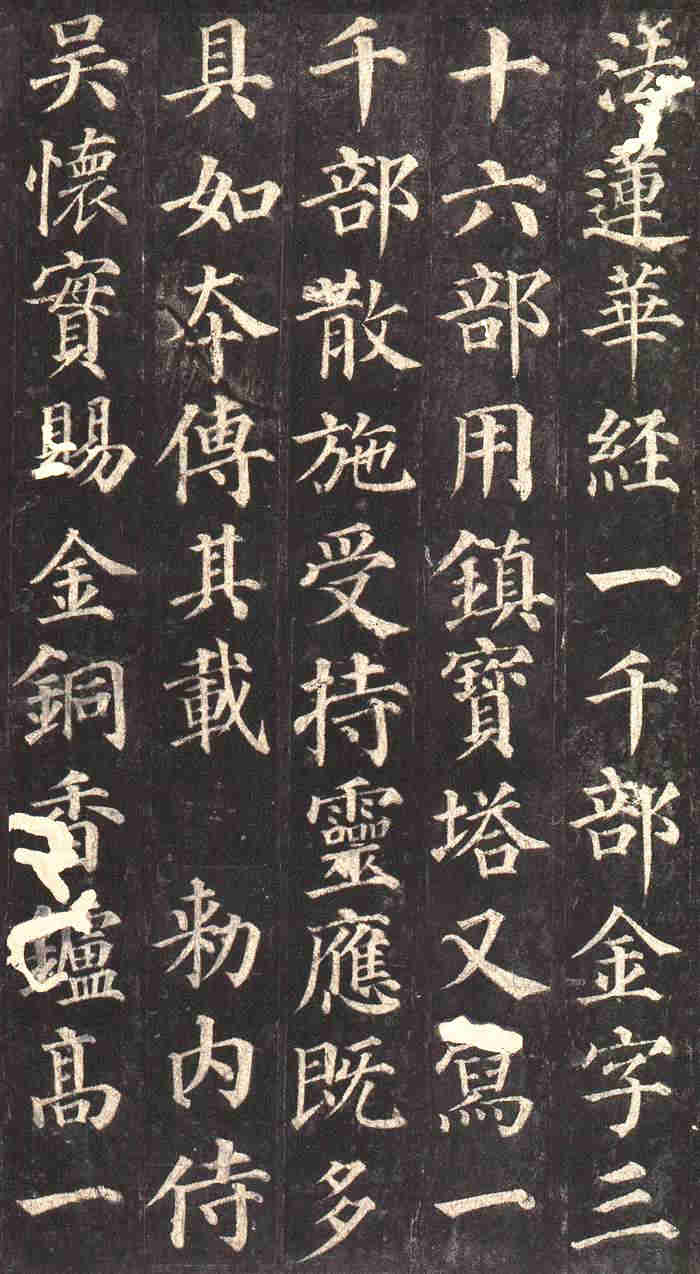 法蓮華経一千部金字三
十六部用鎮寶塔又寫一
千部散施受持靈應既多
具如夲傳其載 勑内侍
吴懷實賜金銅香鑪髙一